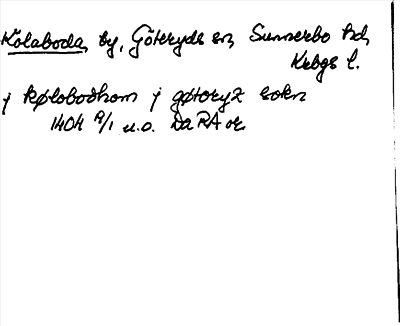 Kölaboda, by, Göteryds sn, Sunnerbo hd,
Krbgs l.
j kølabodhom j gøtoryz sokn
1404 9/1 u.o. Da RA or.